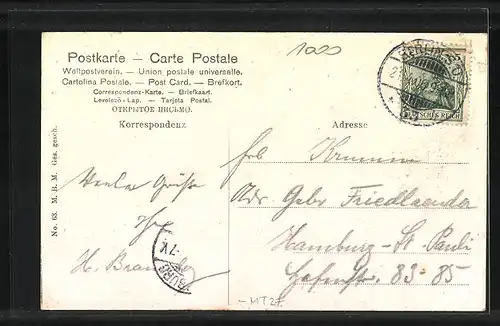 Postkarte — Carte Postale
Weltpostverein. — Union postale universelle.
Cartolina Postale. — Post Card. — Brefkort.
Correspondenz-Karte. — Briefkaart.
Levelező-Lap. — Tarjeta Postal.
ОТКРЫТОЕ ПИСЬМО.
Korrespondenz
Adresse
1020
DEUTSCHES REICH
No. 63. M. B. M. Ges. gesch.
Grüße
H.
Krumm
Adr. Gebr. Friedlaender
Hamburg-St. Pauli
83-85
-MT27